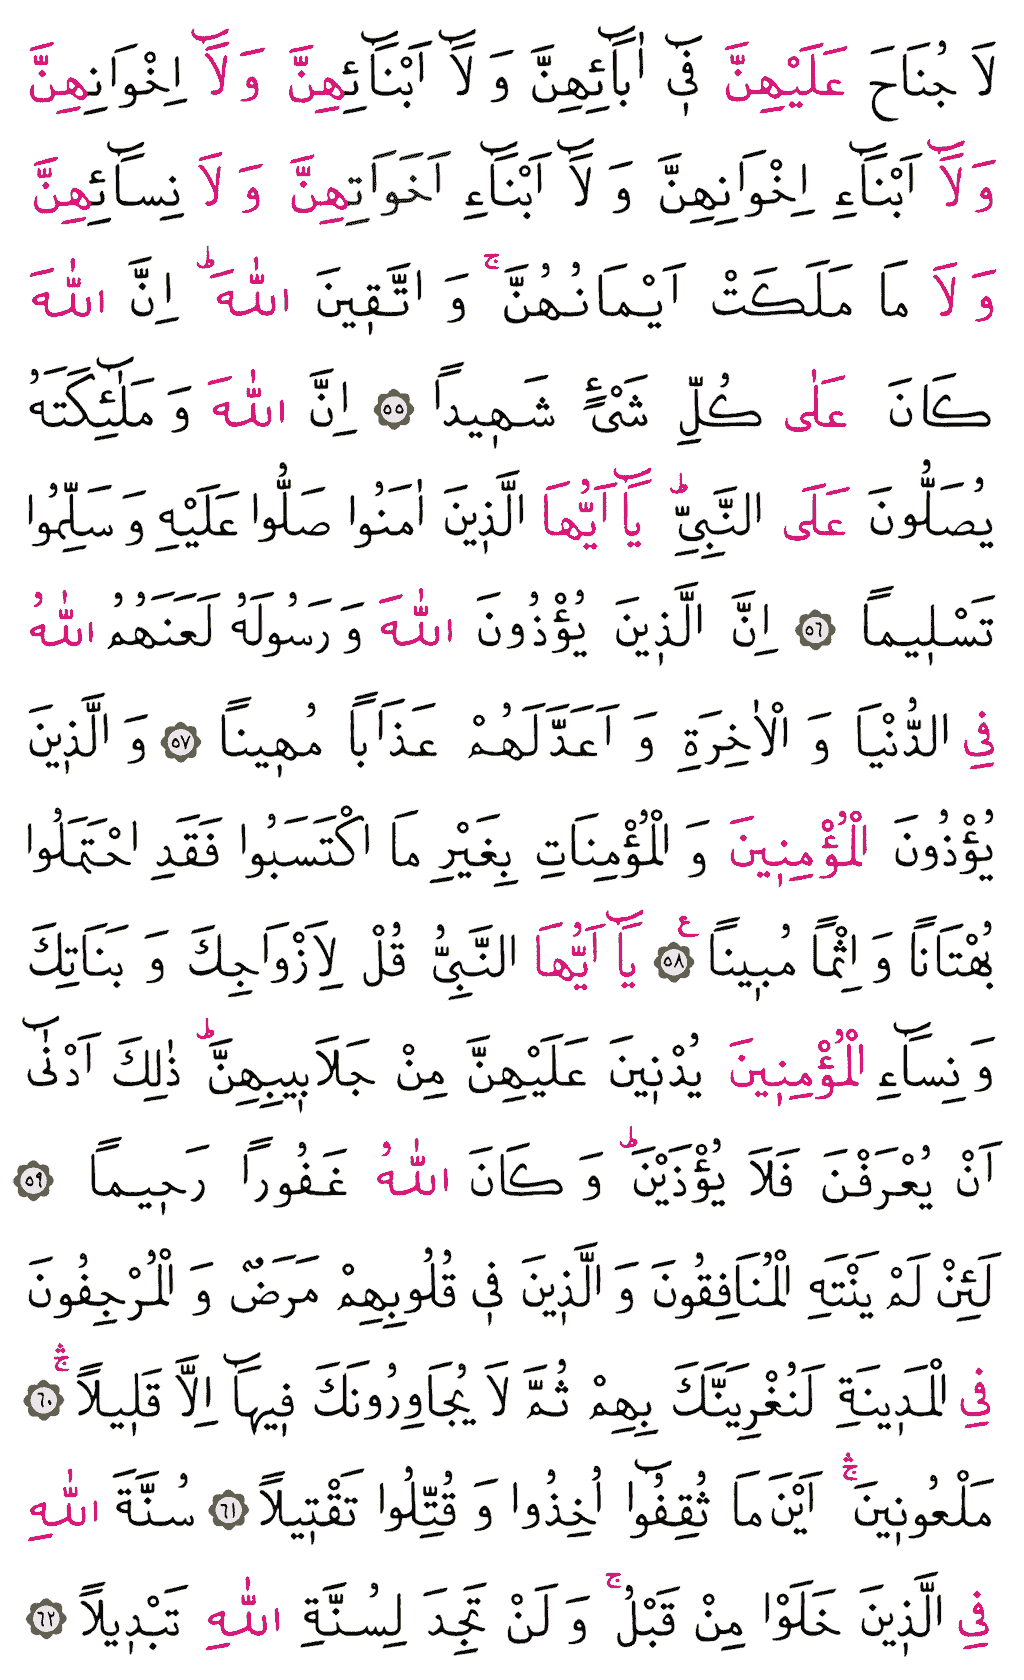 لَا جُنَاحَ عَلَيْهِنَّ فٖٓي اٰبَٓائِهِنَّ وَ لَٓا اَبْنَٓائِهِنَّ وَ لَٓا اِخْوَانِهِنَّ
وَ لَٓا اَبْنَٓاءِ اِخْوَانِهِنَّ وَ لَٓا اَبْنَٓاءِ اَخَوَاتِهِنَّ وَ لَا نِسَٓائِهِنَّ
وَ لَا مَا مَلَكَتْ اَيْمَانُهُنَّۚ وَ اتَّقٖينَ اللّٰهَؕ اِنَّ اللّٰهَ
كَانَ عَلٰى كُلِّ شَيْءٍ شَهٖيداً ﴿٥٥﴾ اِنَّ اللّٰهَ وَ مَلٰٓئِكَتَهُ
يُصَلُّونَ عَلَى النَّبِيِّؕ يَٓا اَيُّهَا الَّذٖينَ اٰمَنُوا صَلُّوا عَلَيْهِ وَ سَلِّمُوا
تَسْلٖيماً ﴿٥٦﴾ اِنَّ الَّذٖينَ يُؤْذُونَ اللّٰهَ وَ رَسُولَهُ لَعَنَهُمُ اللّٰهُ
فِي الدُّنْيَا وَ الْاٰخِرَةِ وَ اَعَدَّ لَهُمْ عَذَاباً مُهٖيناً ﴿٥٧﴾ وَ الَّذٖينَ
يُؤْذُونَ الْمُؤْمِنٖينَ وَ الْمُؤْمِنَاتِ بِغَيْرِ مَا اكْتَسَبُوا فَقَدِ احْتَمَلُوا
بُهْتَاناً وَ اِثْماً مُبٖيناً ﴿٥٨﴾ ع يَٓا اَيُّهَا النَّبِيُّ قُلْ لِاَزْوَاجِكَ وَ بَنَاتِكَ
وَ نِسَٓاءِ الْمُؤْمِنٖينَ يُدْنٖينَ عَلَيْهِنَّ مِنْ جَلَابٖيبِهِنَّؕ ذٰلِكَ اَدْنٰٓى
اَنْ يُعْرَفْنَ فَلَا يُؤْذَيْنَؕ وَ كَانَ اللّٰهُ غَفُوراً رَحٖيماً ﴿٥٩﴾
لَئِنْ لَمْ يَنْتَهِ الْمُنَافِقُونَ وَ الَّذٖينَ فٖي قُلُوبِهِمْ مَرَضٌ وَ الْمُرْجِفُونَ
فِي الْمَدٖينَةِ لَنُغْرِيَنَّكَ بِهِمْ ثُمَّ لَا يُجَاوِرُونَكَ فٖيهَٓا اِلَّا قَلٖيلاًۛۚ ﴿٦٠﴾
مَلْعُونٖينَۛۚ اَيْنَ مَا ثُقِفُٓوا اُخِذُوا وَ قُتِّلُوا تَقْتٖيلاً ﴿٦١﴾ سُنَّةَ اللّٰهِ
فِي الَّذٖينَ خَلَوْا مِنْ قَبْلُۚ وَ لَنْ تَجِدَ لِسُنَّةِ اللّٰهِ تَبْدٖيلاً ﴿٦٢﴾